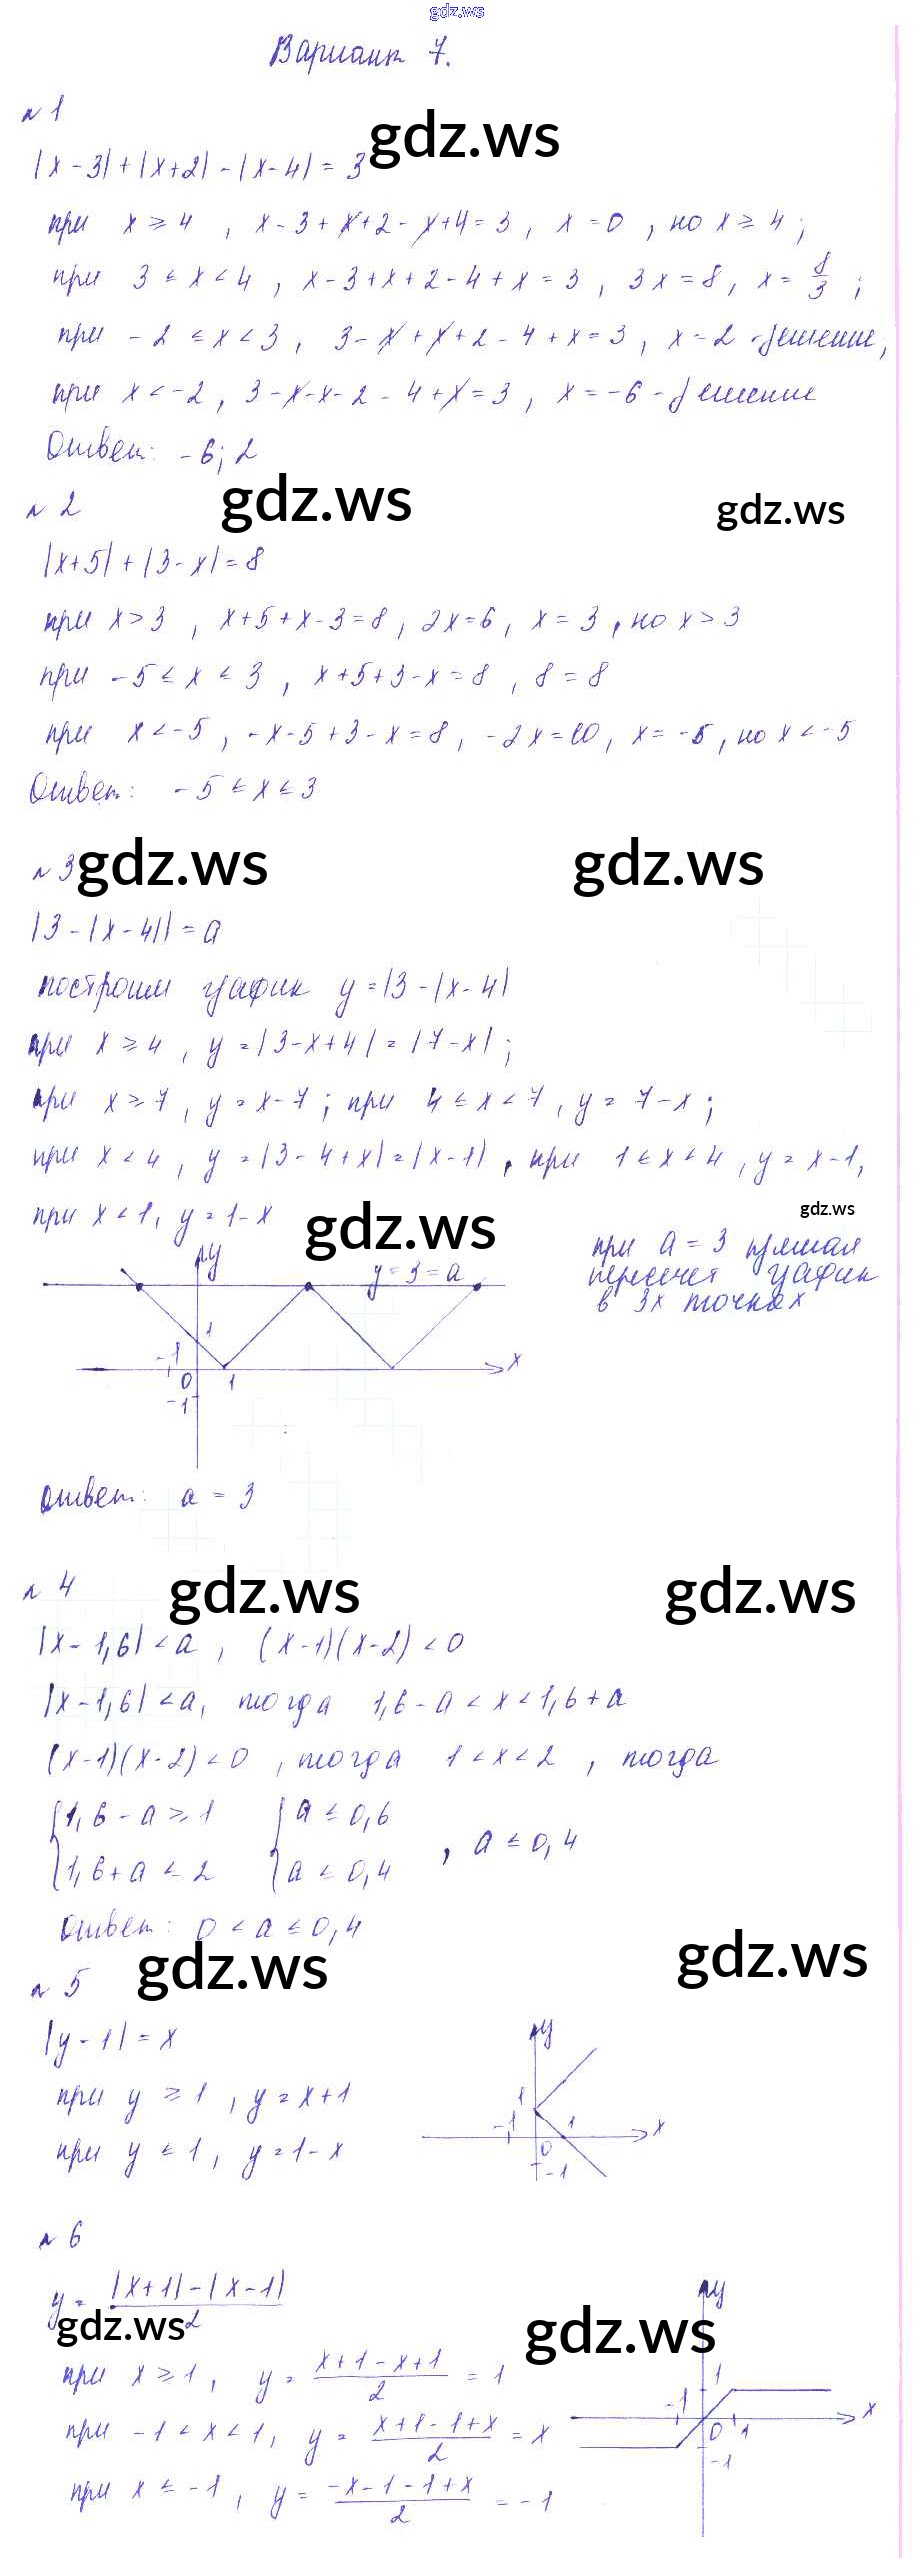 gdz.ws
Вариант 7.
№ 1
gdz.ws
|x-3|+|x+2|-|x-4|=3
при x ≥ 4 , x-3+x+2-x+4=3, x=0 , но x ≥ 4;
при 3 ≤ x < 4 , x-3+x+2-4+x=3 , 3x=8, x=8/3 ;
при -2 ≤ x < 3, 3-x+x+2-4+x=3 , x=2 -решение;
при x<-2, 3-x-x-2-4+x=3 , x=-6 -решение
Ответ: -6; 2
gdz.ws
№ 2
gdz.ws
|x+5|+|3-x|=8
при x>3 , x+5+x-3=8, 2x=6, x=3, но x>3
при -5 ≤ x ≤ 3 , x+5+3-x=8 , 8=8
при x<-5, -x-5+3-x=8, -2x=10, x=-5, но x<-5
Ответ: -5 ≤ x ≤ 3
№ 3 gdz.ws gdz.ws
|3-|x-4||=a
построим график y=|3-|x-4|
при x ≥ 4 , y=|3-x+4|=|7-x| ;
при x ≥ 7 , y=x-7; при 4 ≤ x < 7, y=7-x;
при x<4 , y=|3-4+x|=|x-1| , при 1 ≤ x < 4, y=x-1,
при x<1, y=1-x
gdz.ws
gdz.ws
при a=3 прямая
пересечет график
в 3х точках
y
y=3=a
1
-1
0
1
x
-1
Ответ: a = 3
№ 4
gdz.ws gdz.ws
|x-1,6|<a , (x-1)(x-2)<0
|x-1,6|<a, тогда 1,6-a<x<1,6+a
(x-1)(x-2)<0 , тогда 1<x<2 , тогда
{1,6-a ≥ 1 {a ≤ 0,6
, a ≤ 0,4
{1,6+a ≤ 2 {a ≤ 0,4
Ответ: 0 < a ≤ 0,4
gdz.ws gdz.ws
№ 5
|y-1|=x
при y ≥ 1 , y=x+1
при y ≤ 1, y=1-x
y
1
-1
1
x
0
-1
№ 6
y=(|x+1|-|x-1|)/2
gdz.ws gdz.ws
при x ≥ 1, y=(x+1-x+1)/2=1
при -1<x<1, y=(x+1-1+x)/2=x
при x ≤ -1 , y=(-x-1-1+x)/2=-1
y
1
-1
x
0
1
-1